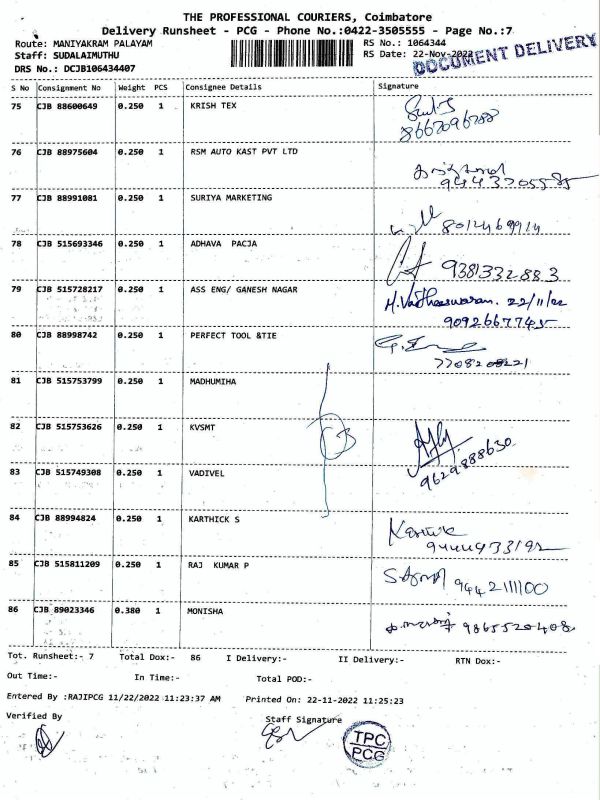 THE PROFESSIONAL COURIERS, Coimbatore
Delivery Runsheet - PCG - Phone No.:0422-3505555 - Page No.:7
Route: MANIYAKRAM PALAYAM RS No.: 1064344
Staff: SUDALAIMUTHU RS Date: 22-Nov-2022
DOCUMENT DELIVERY
DRS No.: DCJB106434407
S No Consignment No Weight PCS Consignee Details Signature
75 CJB 88600649 0.250 1 KRISH TEX
76 CJB 88975604 0.250 1 RSM AUTO KAST PVT LTD
77 CJB 88991081 0.250 1 SURIYA MARKETING
8012469914
78 CJB 515693346 0.250 1 ADHAVA PACJA
9381332883
79 CJB 515728217 0.250 1 ASS ENG/ GANESH NAGAR
22/11/22
9092667745
80 CJB 88998742 0.250 1 PERFECT TOOL &TIE
81 CJB 515753799 0.250 1 MADHUMIHA
82 CJB 515753626 0.250 1 KVSMT
9629888630
83 CJB 515749308 0.250 1 VADIVEL
84 CJB 88994824 0.250 1 KARTHICK S
85 CJB 515811209 0.250 1 RAJ KUMAR P
9442111100
86 CJB 89023346 0.380 1 MONISHA
9865520408
Tot. Runsheet:- 7 Total Dox:- 86 I Delivery:- II Delivery:- RTN Dox:-
Out Time:- In Time:- Total POD:-
Entered By :RAJIPCG 11/22/2022 11:23:37 AM Printed On: 22-11-2022 11:25:23
Verified By Staff Signature
TPC
PCG